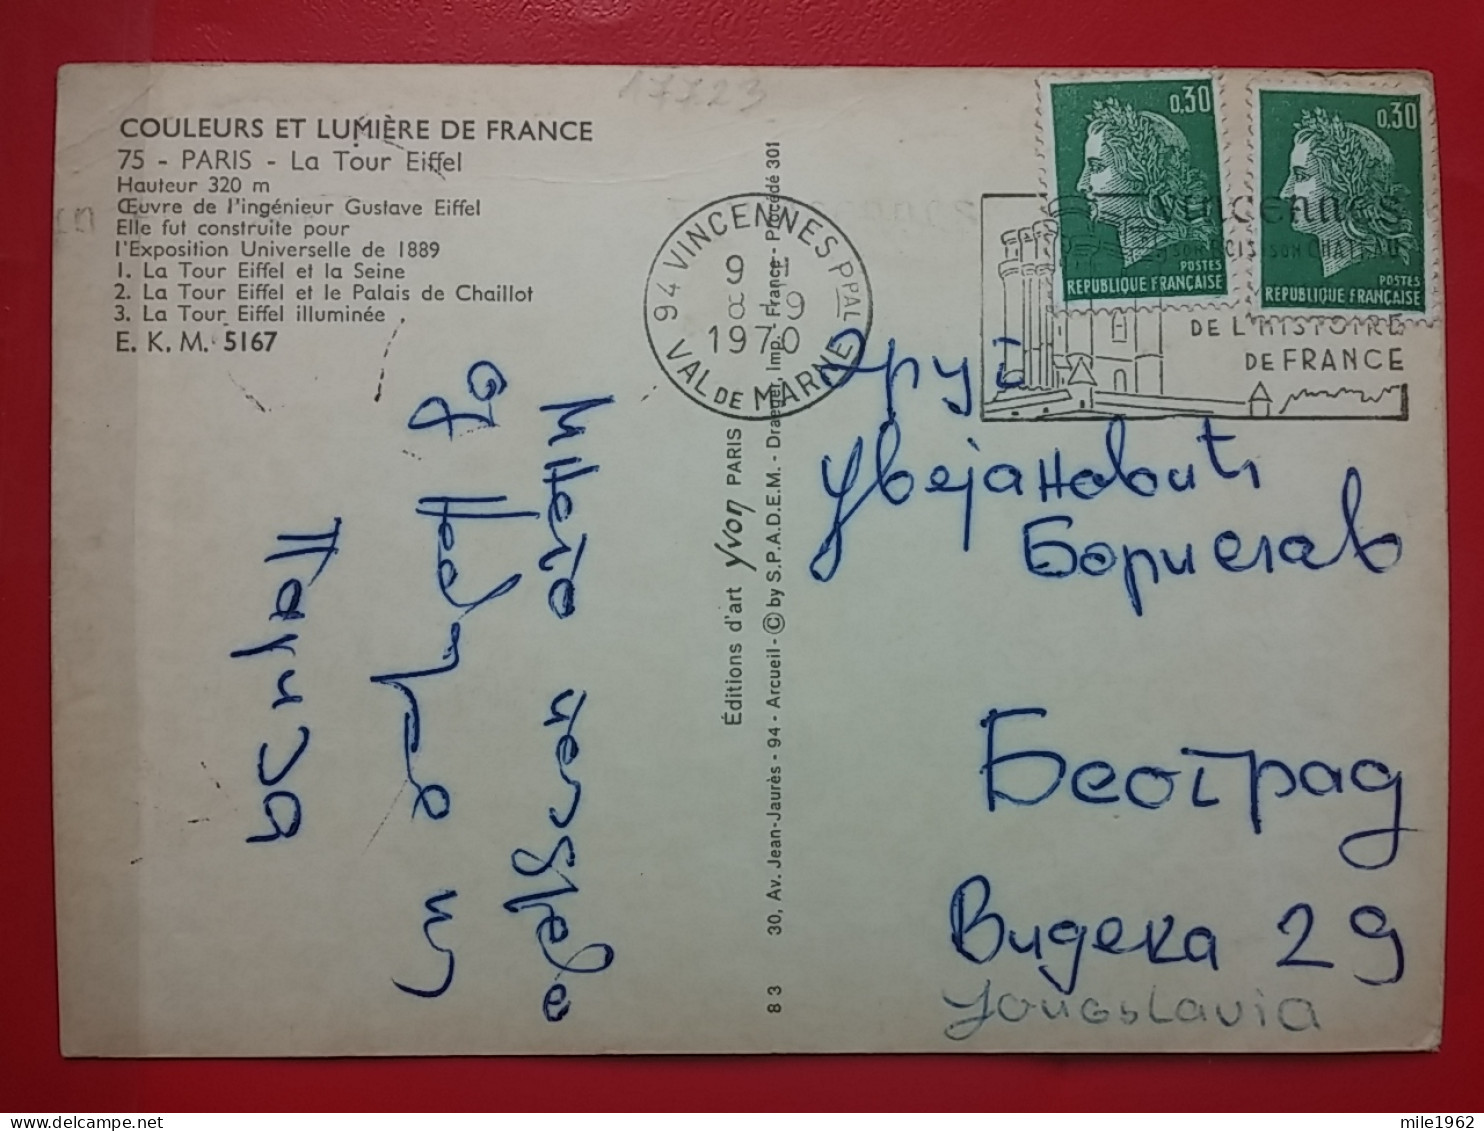 17723
COULEURS ET LUMIÈRE DE FRANCE
75 - PARIS - La Tour Eiffel
Hauteur 320 m
Œuvre de l'ingénieur Gustave Eiffel
Elle fut construite pour
l'Exposition Universelle de 1889
1. La Tour Eiffel et la Seine
2. La Tour Eiffel et le Palais de Chaillot
3. La Tour Eiffel illuminée
E. K. M. 5167
Много
од
Éditions d'art Yvon PARIS
8 3 30, Av. Jean-Jaurès - 94 - Arcueil - © by S.P.A.D.E.M. - Draeger, Imp. - France - Procédé 301
94 VINCENNES PPAL
9 H
8 - 9
1970
VAL DE MARNE
0,30
POSTES
REPUBLIQUE FRANÇAISE
0,30
POSTES
REPUBLIQUE FRANÇAISE
VINCENNES
SON BOIS SON CHATEAU
DE L'HISTOIRE
DE FRANCE
Цвејановић
Борислав
Београд
Видска 29
Yougoslavia
mile1962